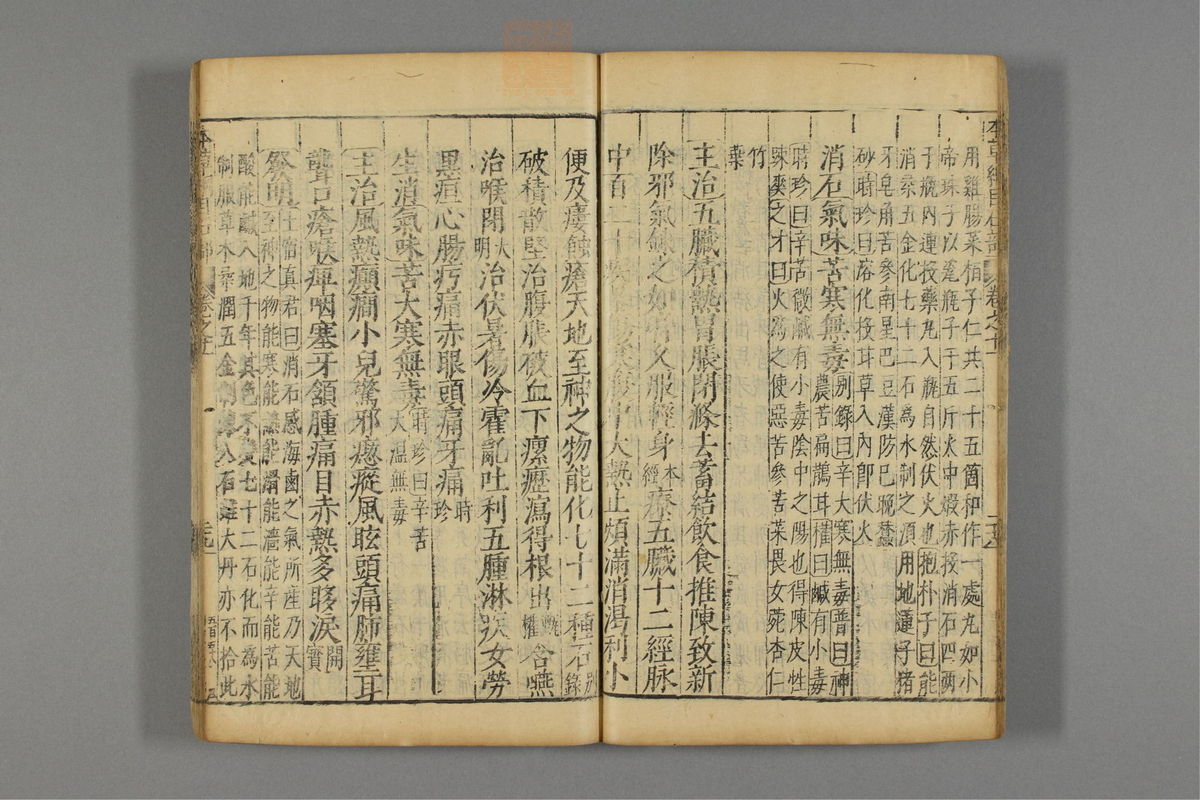 用雞腸菜柏子仁共二十五箇和作一處丸如小
帝珠子以瓷瓶子于五斤火中煅赤投消石四兩
子瓶內連投藥丸入瓶自然伏火也抱朴子曰能
消柔五金化七十二石爲水制之須用地蓮子猪
牙皂角苦參南星巴豆漢防己晚蠶
砂時珍曰溶化投甘草入內即伏火
消石氣味苦寒無毒
別錄曰辛大寒無毒普曰神
農苦扁鵲甘權曰鹹有小毒
時珍曰辛苦微鹹有小毒陰中之陽也得陳皮性
踈爽之才曰火爲之使惡苦參苦菜畏女菀杏仁
竹
葉
主治五臟積熱胃脹閉滌去蓄結飲食推陳致新
除邪氣鍊之如膏久服輕身
本
經
療五臟十二經脉
中百二十 大熱止煩滿消渴利小
便及瘻蝕瘡天地至神之物能化七十二種石
別
錄
破積散堅治腹脹破血下瘰癧瀉得根出
甄
權
含嚥
治喉閉
大
明
治伏暑傷冷霍亂吐利五腫淋疾女勞
黑疸心腸疞痛赤眼頭痛牙痛
時
珍
生消氣味苦大寒無毒
時珍曰辛苦
大溫無毒
主治風熱癲癇小兒驚邪瘛瘲風眩頭痛肺壅耳
聾口瘡喉痺咽塞牙頷腫痛目赤熱多眵淚
開
寶
發明
土宿真君曰消石感海鹵之氣所産乃天地
至神之物能寒能熱能滑能濇能辛能苦能
酸能鹹入地千年其色不變七十二石化而爲水
制服草木柔潤五金制煉八石雖大丹亦不捨此